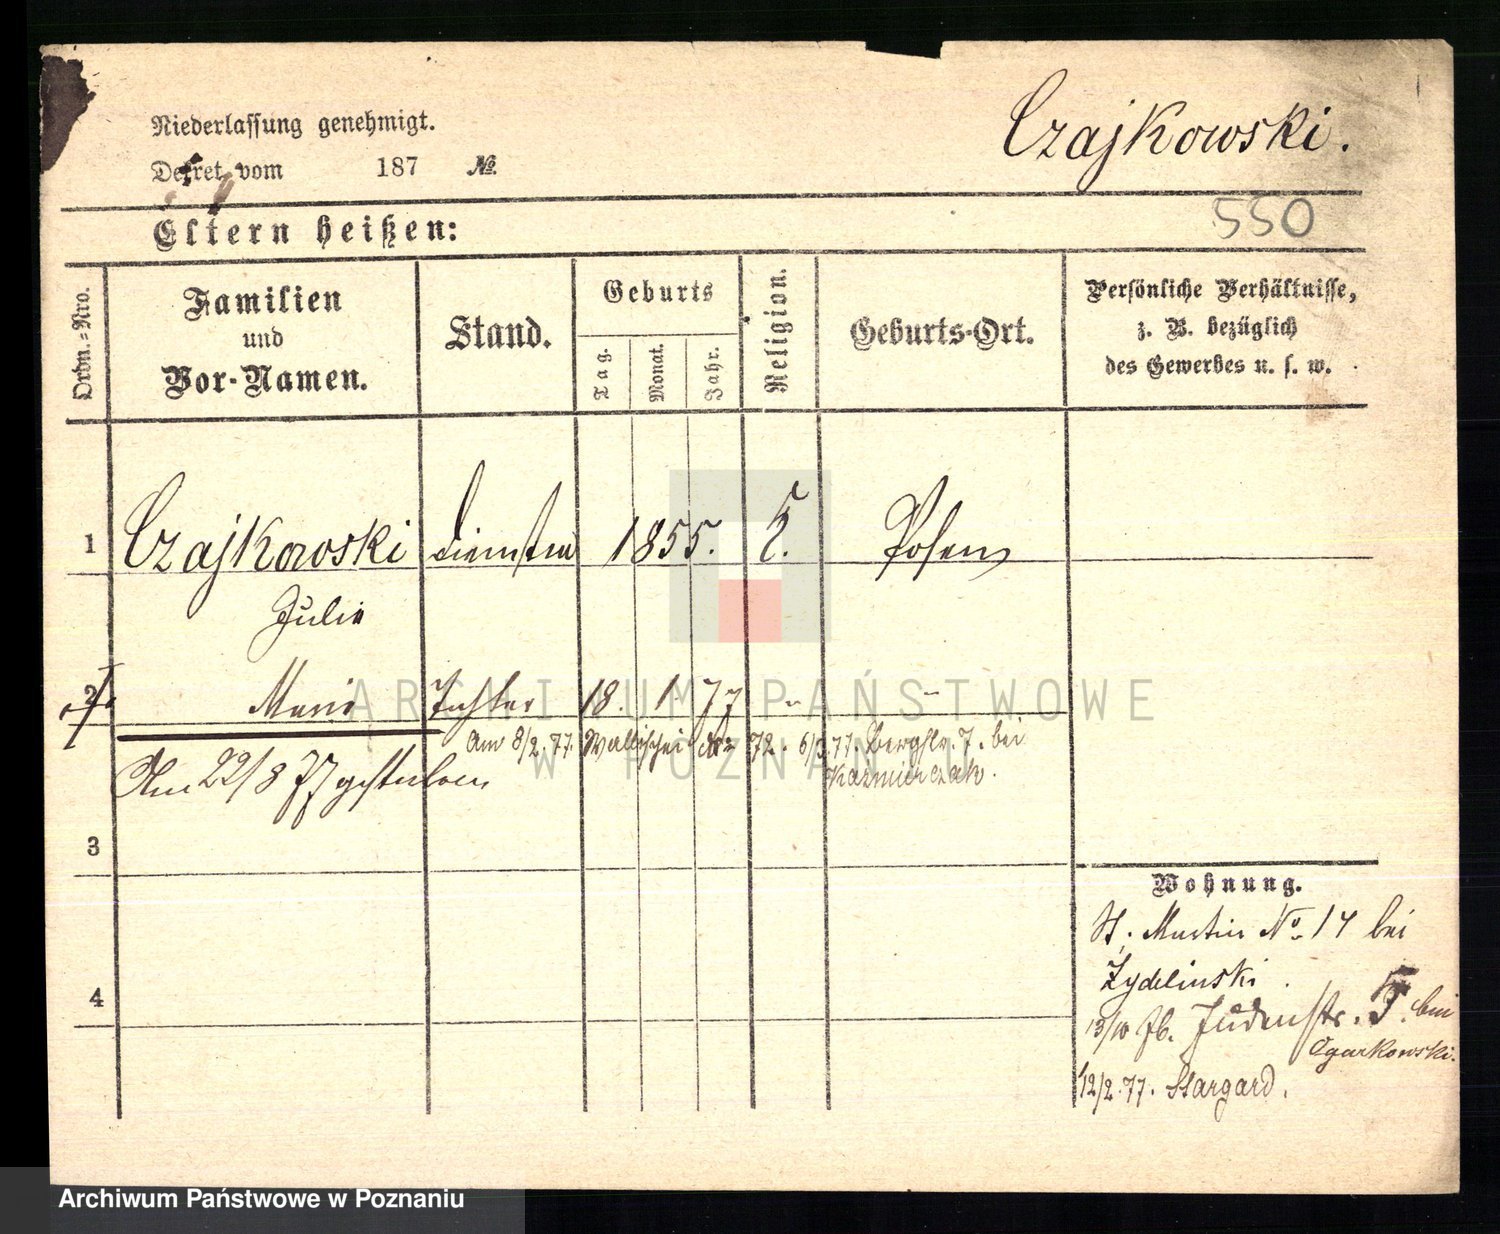 Niederlassung genehmigt.
Czajkowski.
Dekret vom 187 №
550
Eltern heißen:
Ordn.-Nro.
Familien
und
Vor-Namen.
Stand.
Geburts
Tag.
Monat.
Jahr.
Religion.
Geburts-Ort.
Persönliche Verhältnisse,
z. B. bezüglich
des Gewerbes u. s. w.
1 Czajkowski 1855. Posen
Julie
2 Marie Tochter 18. 1. 77 " "
Am 8/2.77. Wallischei 72. 6/3.77. Bergstr. 7. bei
Kazmierczak.
Am 22/8 77 gestorben
3
Wohnung.
St. Martin No 14 bei
Zydelinski.
4
13/10 76. Judenstr. 5. bei
Ogurkowski.
12/2.77. Stargard.
ARCHIWUM PAŃSTWOWE
W POZNANIU
Archiwum Państwowe w Poznaniu